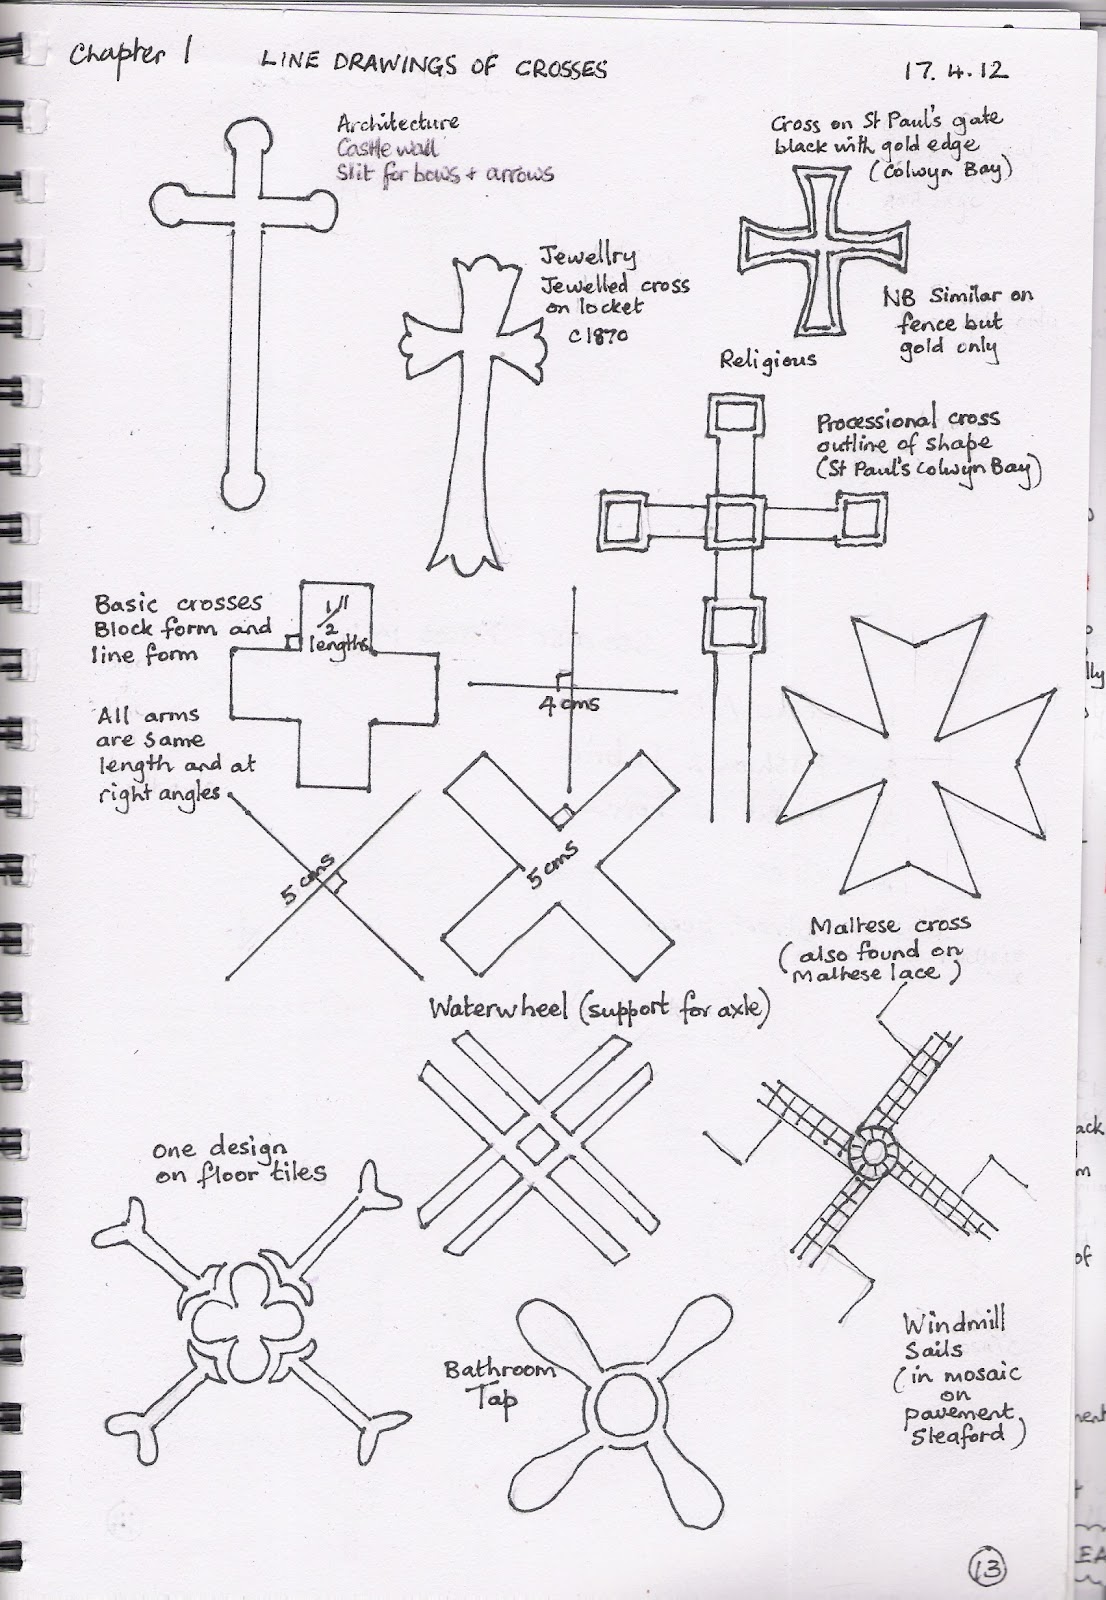 Chapter 1 LINE DRAWINGS OF CROSSES
17.4.12
Architecture
Castle wall
Slit for bows + arrows
Cross on St Paul's gate
black with gold edge
(Colwyn Bay)
Jewellry
Jewelled cross
on locket
c1870
NB Similar on
fence but
gold only
Religious
Processional cross
outline of shape
(St Paul's Colwyn Bay)
Basic crosses
Block form and
line form
1/2"
lengths
4 cms
All arms
are same
length and at
right angles
5 cms
5 cms
Maltese cross
(also found on
Maltese lace)
Waterwheel (support for axle)
one design
on floor tiles
Bathroom
Tap
Windmill
Sails
(in mosaic
on
pavement
Sleaford)
13